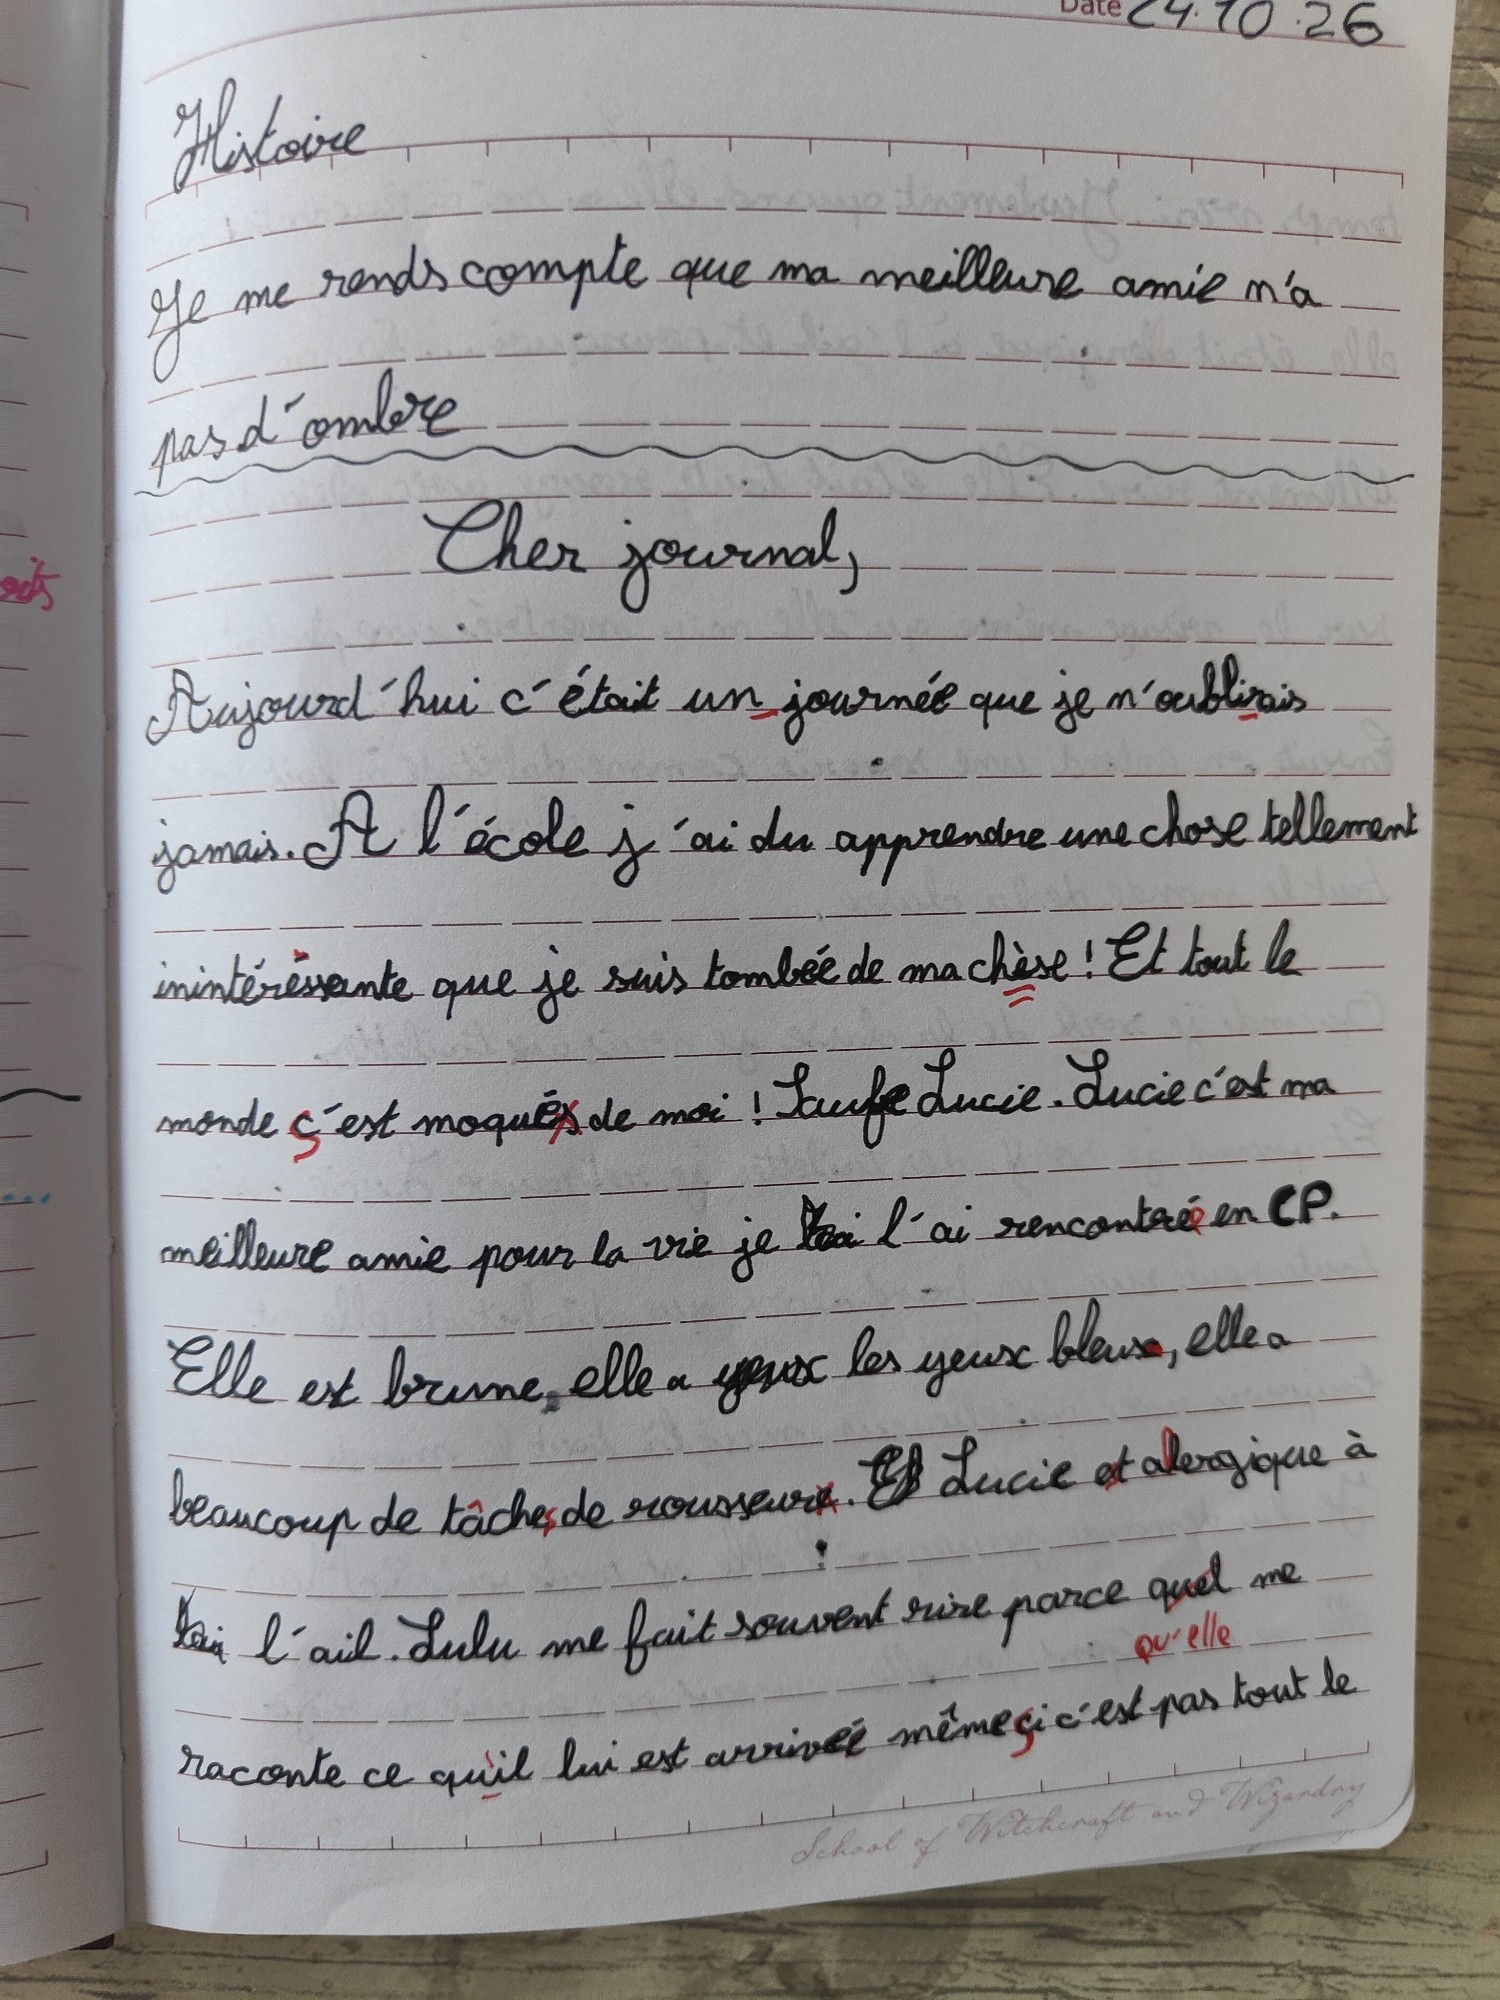 Date 24.10.26
Histoire
Je me rends compte que ma meilleure amie n'a
pas d'ombre
Cher journal,
Aujourd'hui c'était un journée que je n'oublirais
jamais. A l'école j'ai du apprendre une chose tellement
inintéressante que je suis tombée de ma chèse ! Et tout le
monde c'est moqués de moi ! Saufe Lucie. Lucie c'est ma
meilleure amie pour la vie je l'ai rencontré en CP.
Elle est brune, elle a yeux les yeux bleus, elle a
beaucoup de tâches de rousseure. Et Lucie et alergique à
l'ail. Lulu me fait souvent rire parce quel me
qu'elle
raconte ce qu'il lui est arrivée même si c'est pas tout le
School of Witchcraft and Wizardry